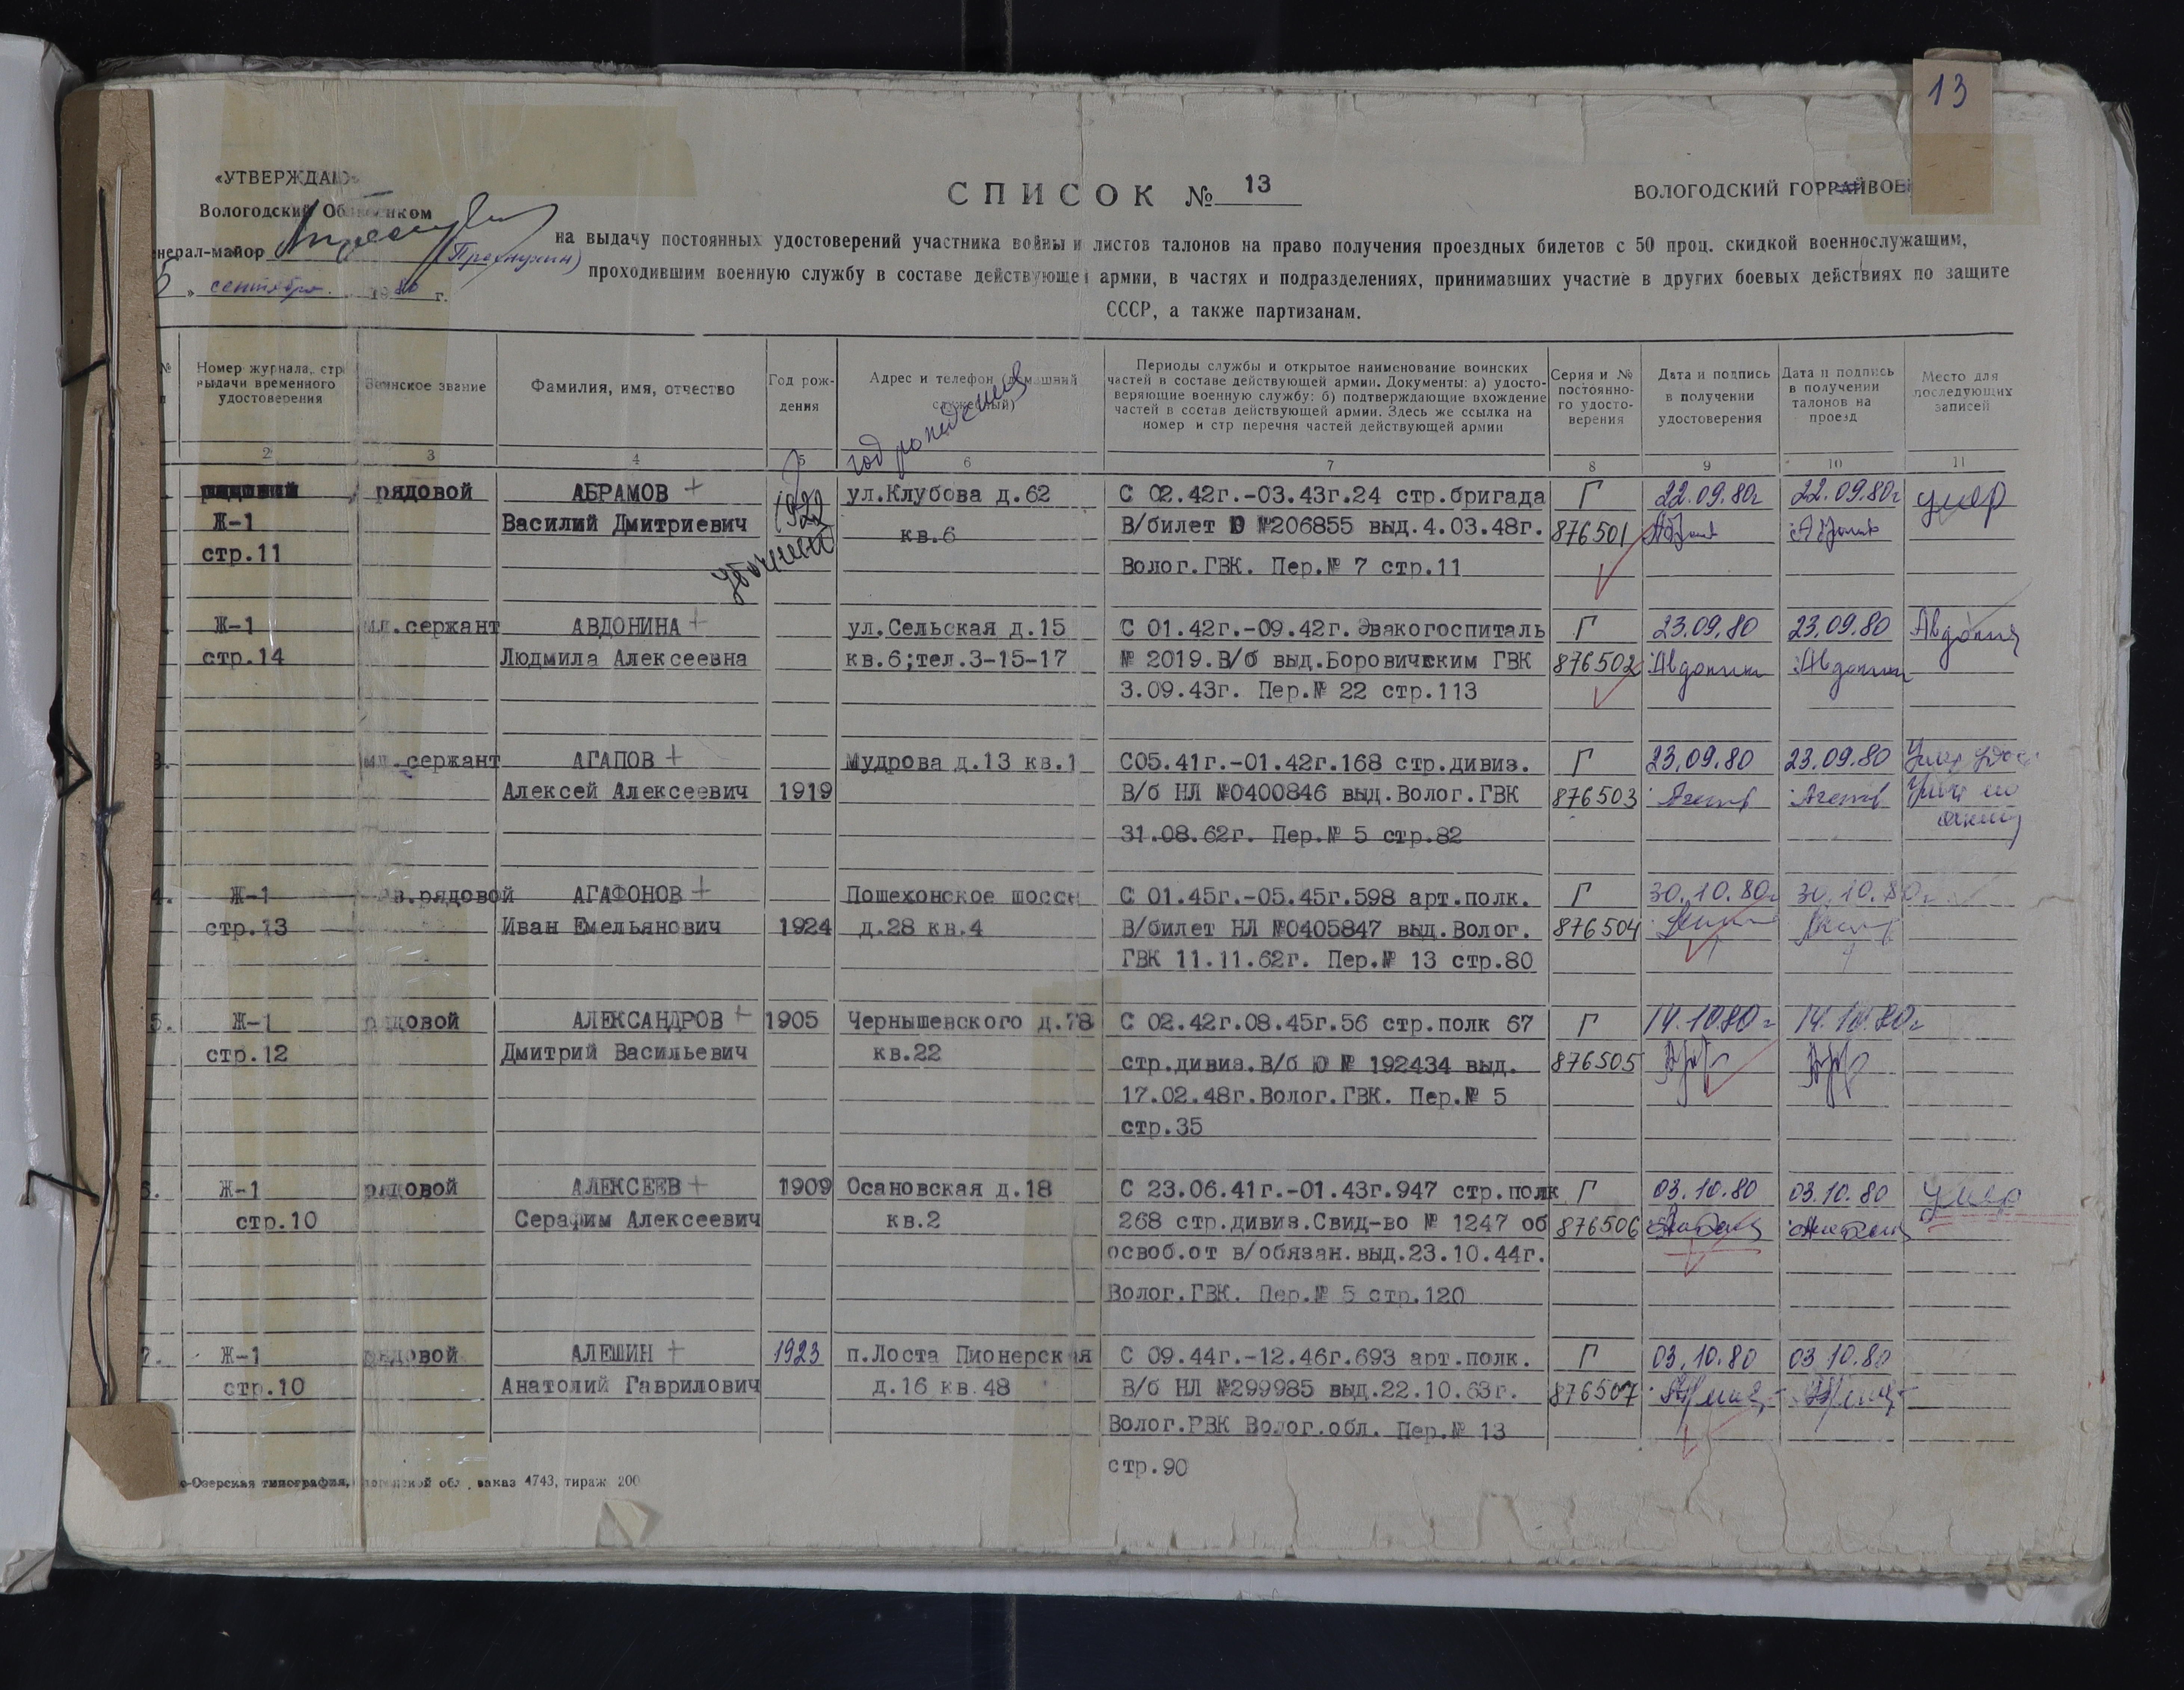 13
«УТВЕРЖДАЮ»
Вологодский Облвоенком
генерал-майор
сентября 1980 г.
СПИСОК № 13
ВОЛОГОДСКИЙ ГОРРАЙВОЕ
на выдачу постоянных удостоверений участника войны и листов талонов на право получения проездных билетов с 50 проц. скидкой военнослужащим,
проходившим военную службу в составе действующей армии, в частях и подразделениях, принимавших участие в других боевых действиях по защите
СССР, а также партизанам.
№
Номер журнала, стр. выдачи временного удостоверения
Воинское звание
Фамилия, имя, отчество
Год рождения
Адрес и телефон (домашний служебный)
Периоды службы и открытое наименование воинских
частей в составе действующей армии. Документы: а) удосто-
веряющие военную службу; б) подтверждающие вхождение
частей в состав действующей армии. Здесь же ссылка на
номер и стр перечня частей действующей армии
Серия и № постоянно-го удосто-верения
Дата и подпись в получении удостоверения
Дата и подпись в получении талонов на проезд
Место для последующих записей
2 3 4 5 6 7 8 9 10 11
год рождения
уточнено
рядовой АБРАМОВ + 1922 ул.Клубова д.62 С 02.42г.-03.43г.24 стр.бригада Г 22.09.80г 22.09.80г умер
Ж-1 Василий Дмитриевич кв.6 В/билет Ю №206855 выд.4.03.48г. 876501
стр.11 Волог.ГВК. Пер.№ 7 стр.11
Ж-1 мл.сержант АВДОНИНА + ул.Сельская д.15 С 01.42г.-09.42г.Эвакогоспиталь Г 23.09.80 23.09.80
стр.14 Людмила Алексеевна кв.6;тел.3-15-17 № 2019.В/б выд.Боровичским ГВК 876502 Авдонина Авдонина
3.09.43г. Пер.№ 22 стр.113
3. мл.сержант АГАПОВ + Мудрова д.13 кв.1 С05.41г.-01.42г.168 стр.дивиз. Г 23.09.80 23.09.80
Алексей Алексеевич 1919 В/б НЛ №0400846 выд.Волог.ГВК 876503
31.08.62г. Пер.№ 5 стр.82
4. Ж-1 гв.рядовой АГАФОНОВ + Пошехонское шоссе С 01.45г.-05.45г.598 арт.полк. Г 30.10.80г 30.10.80г
стр.13 Иван Емельянович 1924 д.28 кв.4 В/билет НЛ №0405847 выд.Волог. 876504
ГВК 11.11.62г. Пер.№ 13 стр.80
5. Ж-1 рядовой АЛЕКСАНДРОВ + 1905 Чернышевского д.78 С 02.42г.08.45г.56 стр.полк 67 Г 14.10.80г 14.10.80г
стр.12 Дмитрий Васильевич кв.22 стр.дивиз.В/б Ю № 192434 выд. 876505
17.02.48г.Волог.ГВК. Пер.№ 5
стр.35
6. Ж-1 рядовой АЛЕКСЕЕВ + 1909 Осановская д.18 С 23.06.41г.-01.43г.947 стр.полк Г 03.10.80 03.10.80 умер
стр.10 Серафим Алексеевич кв.2 268 стр.дивиз.Свид-во № 1247 об 876506
освоб.от в/обязан.выд.23.10.44г.
Волог.ГВК. Пер.№ 5 стр.120
7. Ж-1 рядовой АЛЕШИН + 1923 п.Лоста Пионерская С 09.44г.-12.46г.693 арт.полк. Г 03.10.80 03.10.80
стр.10 Анатолий Гаврилович д.16 кв.48 В/б НЛ №299985 выд.22.10.63г. 876507
Волог.РВК Волог.обл. Пер.№ 13
стр.90
о-Озерская типография, Вологодской обл., заказ 4743, тираж 200